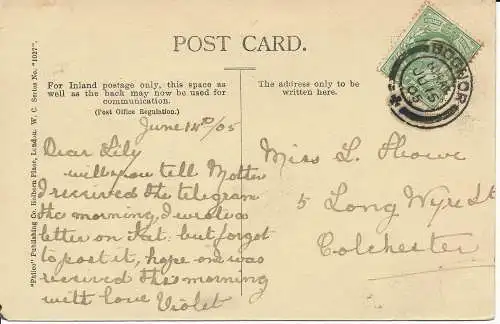 POST CARD.
For Inland postage only, this space as
well as the back may now be used for
communication.
(Post Office Regulation.)
The address only to be
written here.
"Philco" Publishing Co. Holborn Place, London. W. C. Series No. "1027".
BOGNOR
JU 15
05
June 14th/05
Dear Lily
will you tell Mother
I received the telegram
this morning, I wrote a
letter on Sat: but forgot
to post it, hope one was
received this morning
with love Violet
Miss L. Howe
5 Long Wyre St
Colchester